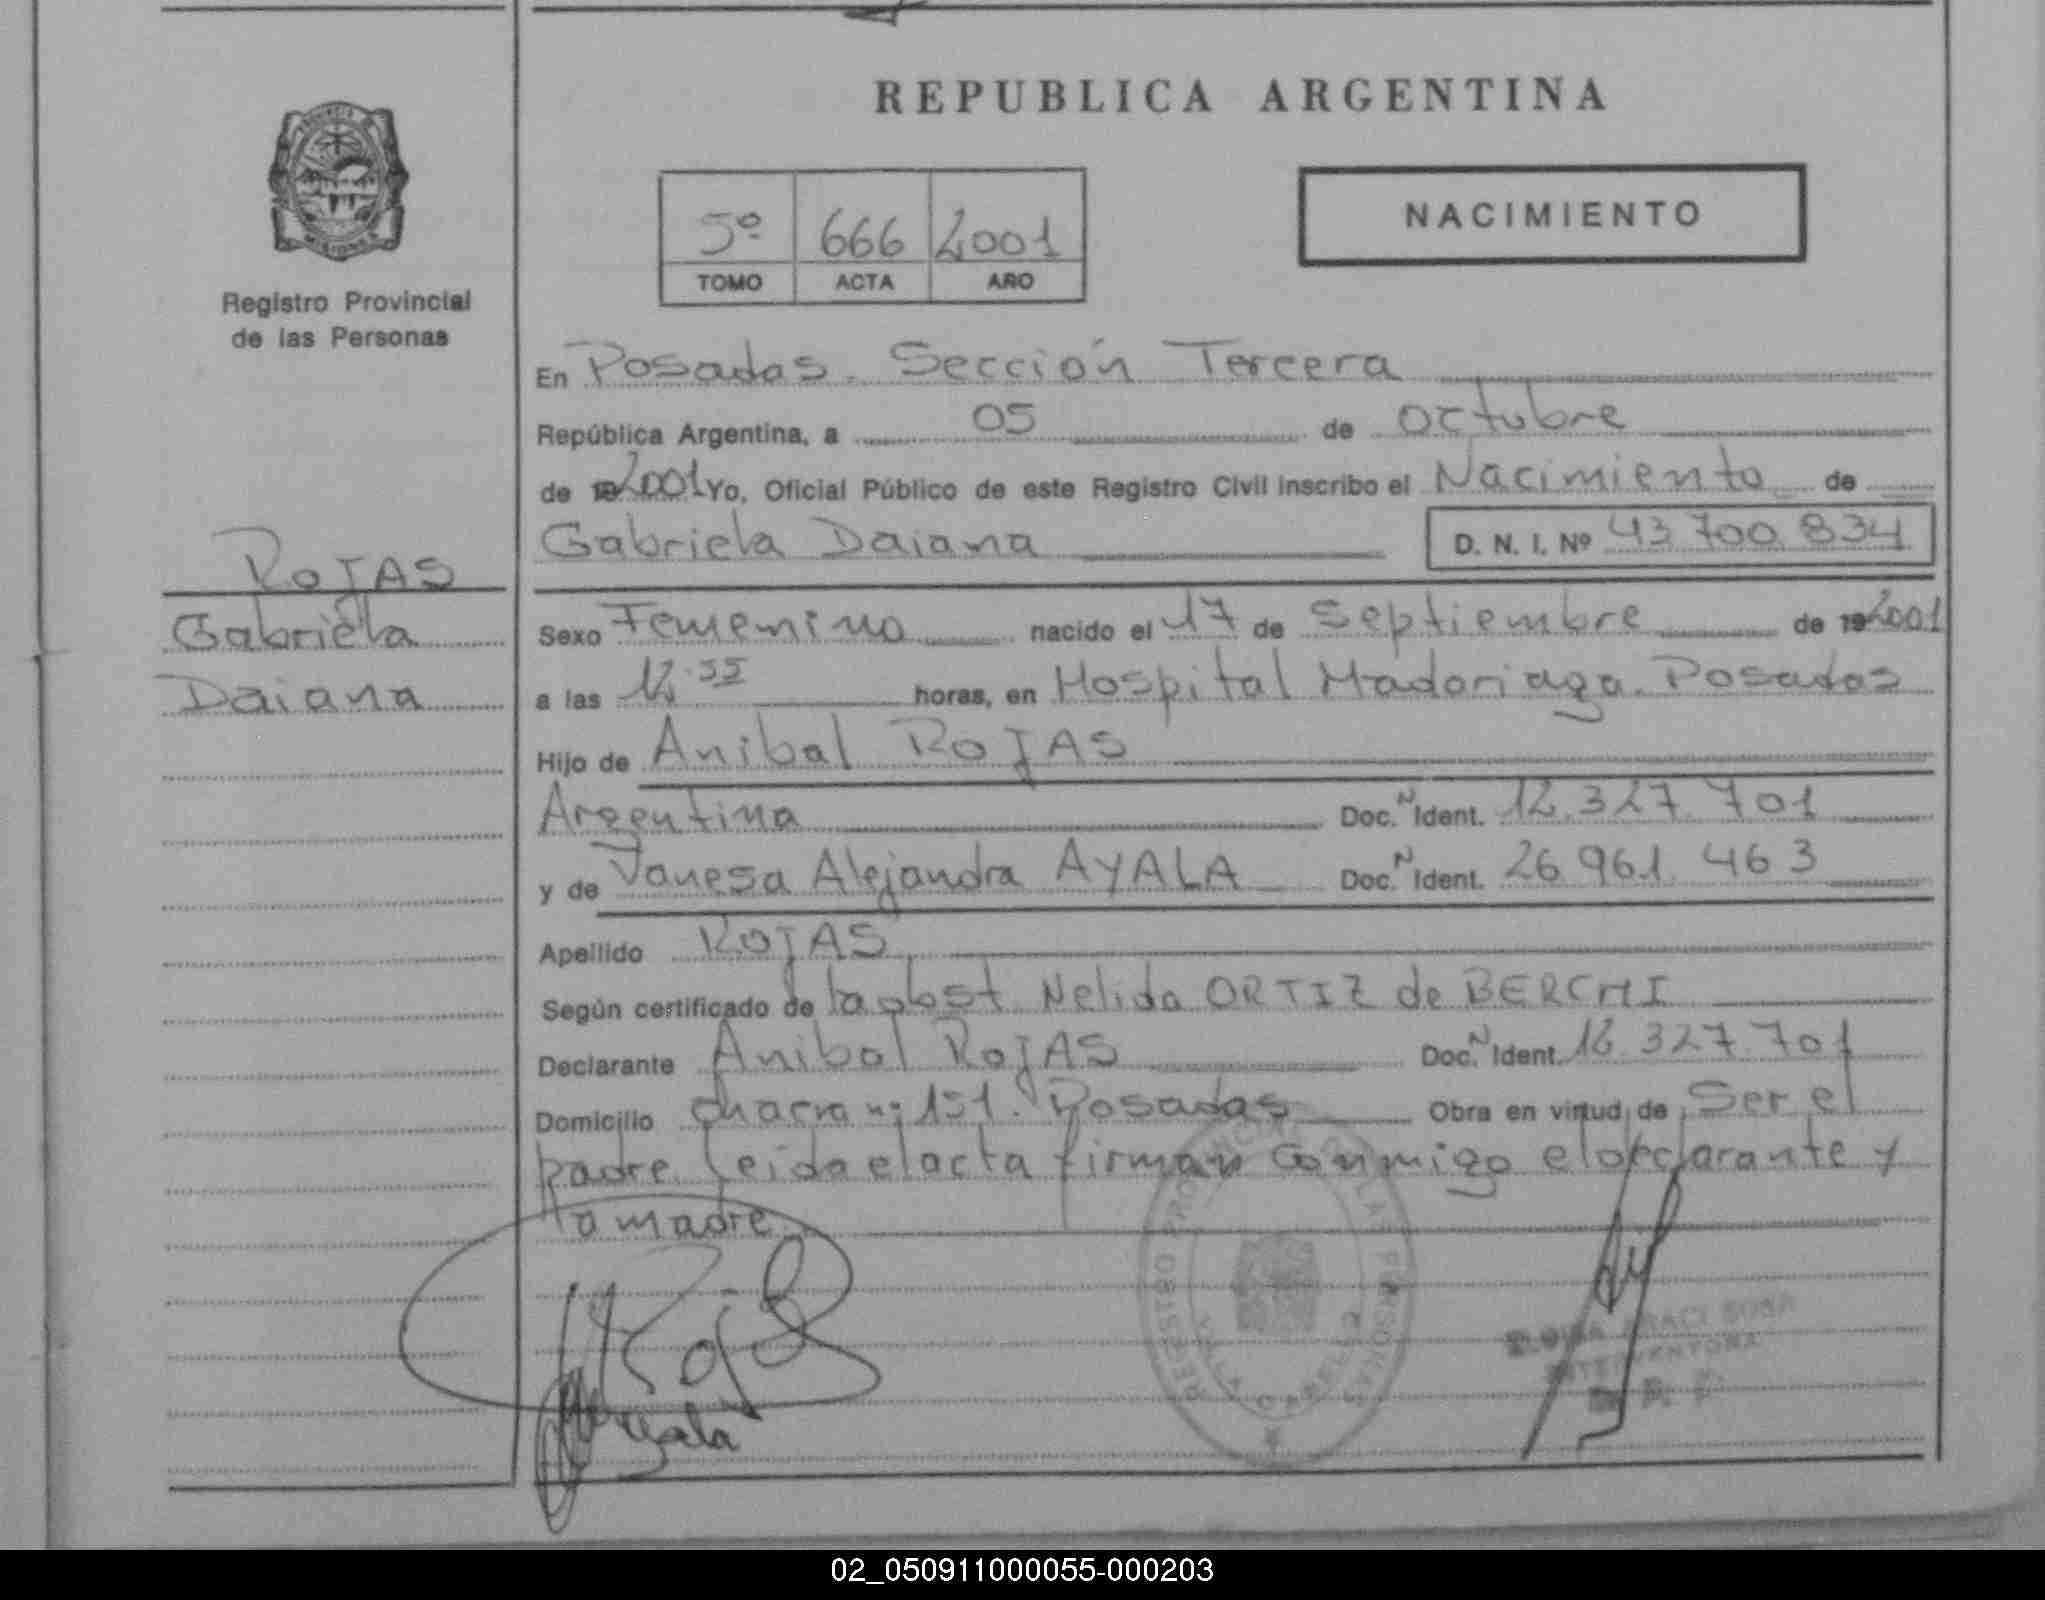 REPUBLICA ARGENTINA
5º 666 2001
TOMO ACTA AÑO
NACIMIENTO
Registro Provincial
de las Personas
ROJAS
Gabriela
Daiana
En Posadas. Sección Tercera
República Argentina, a 05 de octubre
de 19 2001 Yo, Oficial Público de este Registro Civil inscribo el Nacimiento de
Gabriela Daiana D. N. I. Nº 43 700 834
Sexo Femenino nacido el 17 de Septiembre de 19 2001
a las 12:55 horas, en Hospital Madariaga. Posadas
Hijo de Anibal ROJAS
Argentina Doc. N Ident. 12.327.701
y de Vanesa Alejandra AYALA Doc. N Ident. 26 961 463
Apellido ROJAS
Según certificado de la obst Nelida ORTIZ de BERCHI
Declarante Anibal ROJAS Doc. N Ident. 12 327.701
Domicilio chacra nº 151. Posadas Obra en virtud de Ser el
padre. Leida el acta firman conmigo el declarante y
la madre.
Rojas
Ayala
REGISTRO PROVINCIAL DE LAS PERSONAS
VILLA CABELLO
ARACI SOSA
INTERVENTORA
02_050911000055-000203